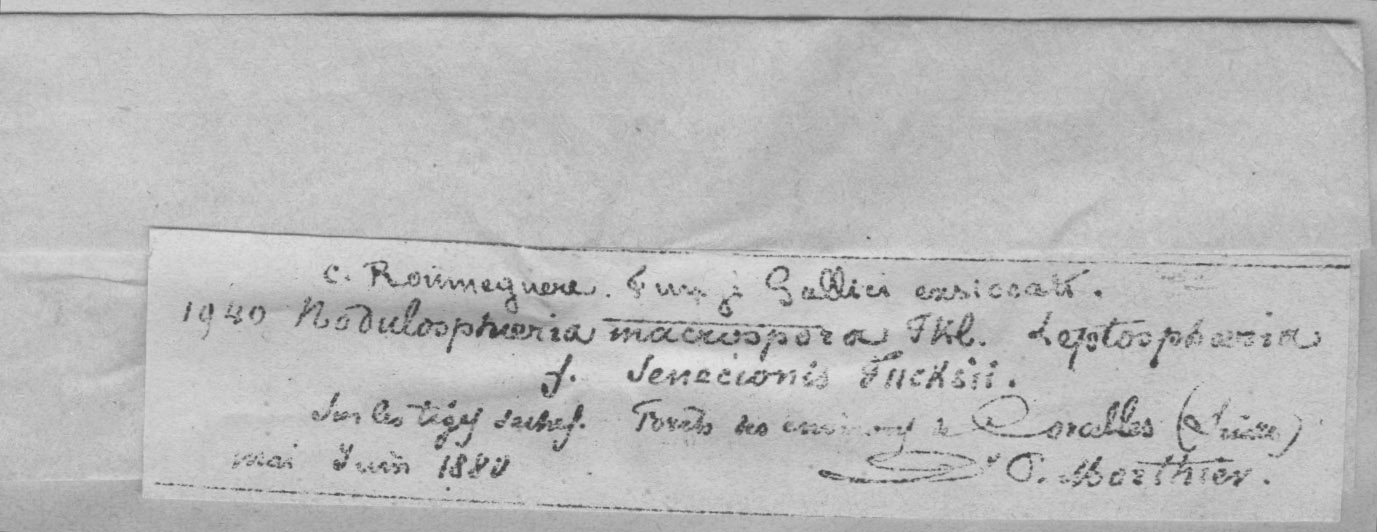 C. Roumeguere. Fungi Gallici exsiccati.
1940 Nodulosphæria macrospora Fkl. Leptosphæria
f. Senecionis Fuckeii.
Sur les tiges seches. Forêts des environs de Corcelles (Suisse)
mai Juin 1880 Dr P. Morthier.